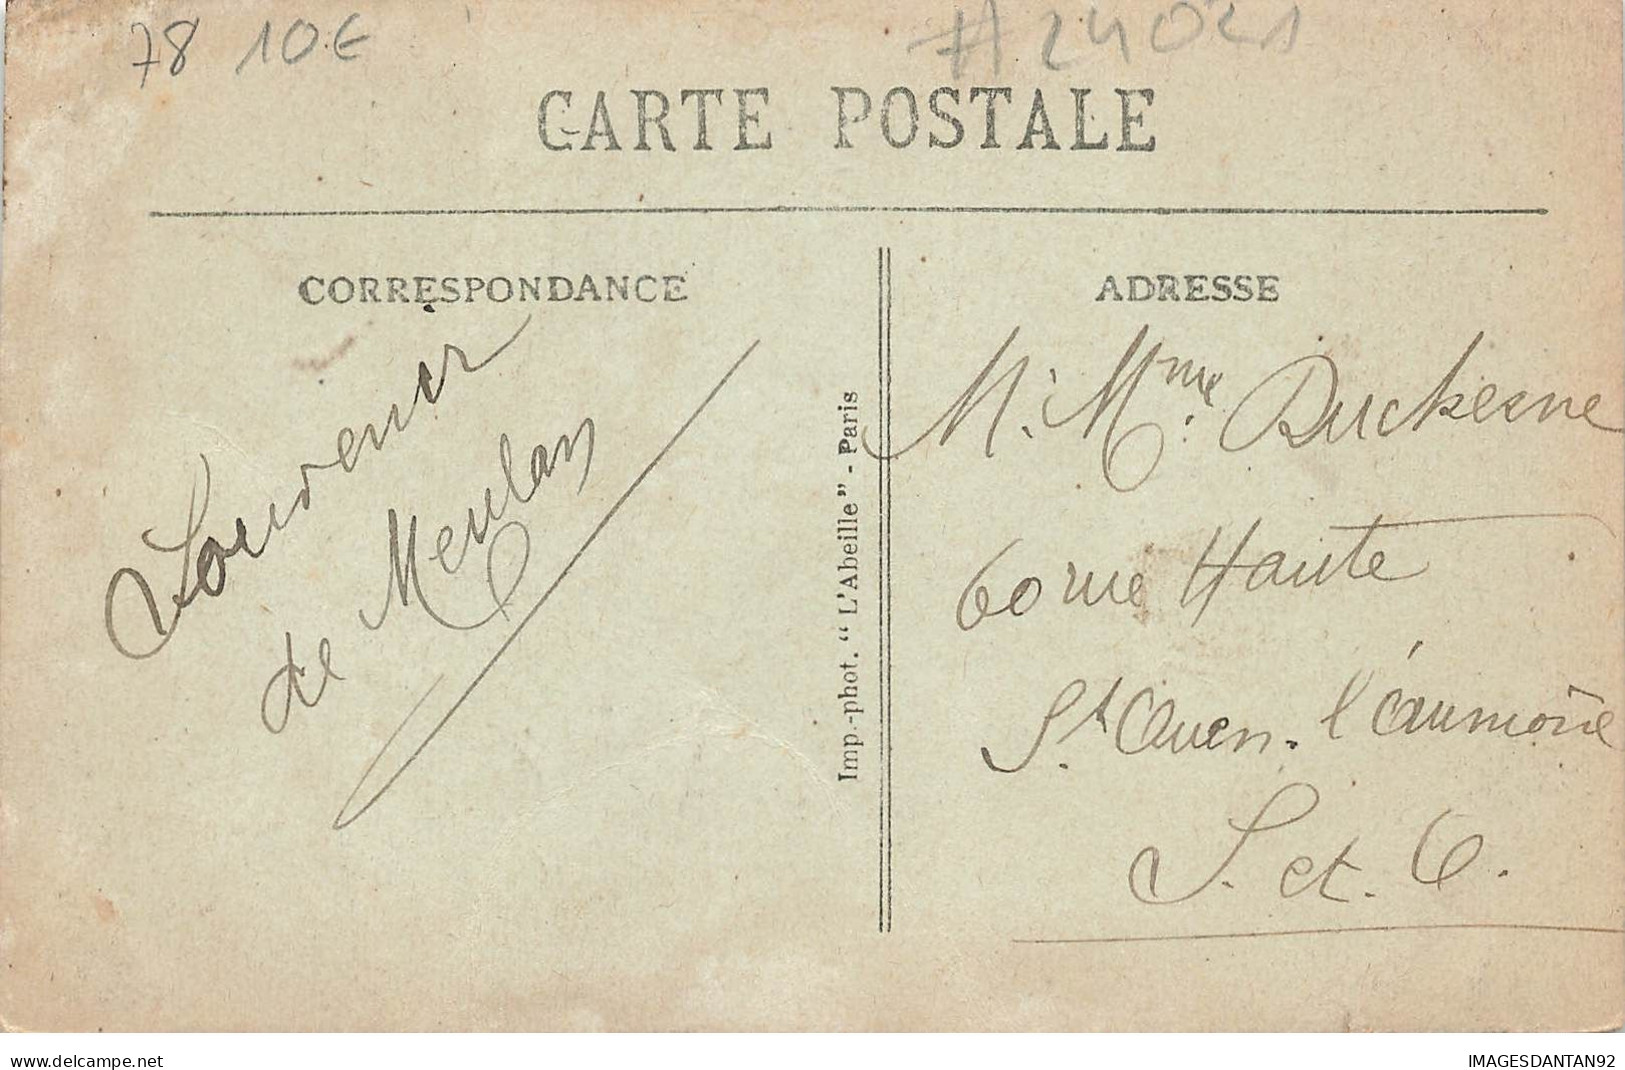 78 10€ #24021
CARTE POSTALE
CORRESPONDANCE
Souvenir
de Meulan
Imp.-phot. “ L'Abeille” - Paris
ADRESSE
M. Mme. Duchesne
60 rue Haute
St. Ouen. l'aumône
S. et. O.
www.delcampe.net
IMAGESDANTAN92